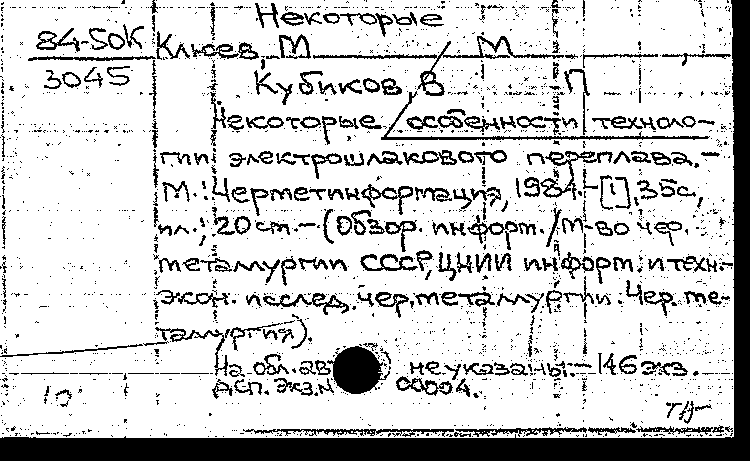 Некоторые
84-50К Клюев, М М
3045 Кубиков, В П
Некоторые особенности техноло-
гии электрошлакового переплава.-
М.: Черметинформация, 1984.-[1], 35с,
ил.; 20 cm.-(Обзор. информ./М-во чер.
металлургии СССР, ЦНИИ информ. и техн.-
экон. исслед. чер. металлургии. Чер. ме-
таллургия).
На обл. ав не указаны.- 146 экз.
Д.СП. Экз.N 00004.
10